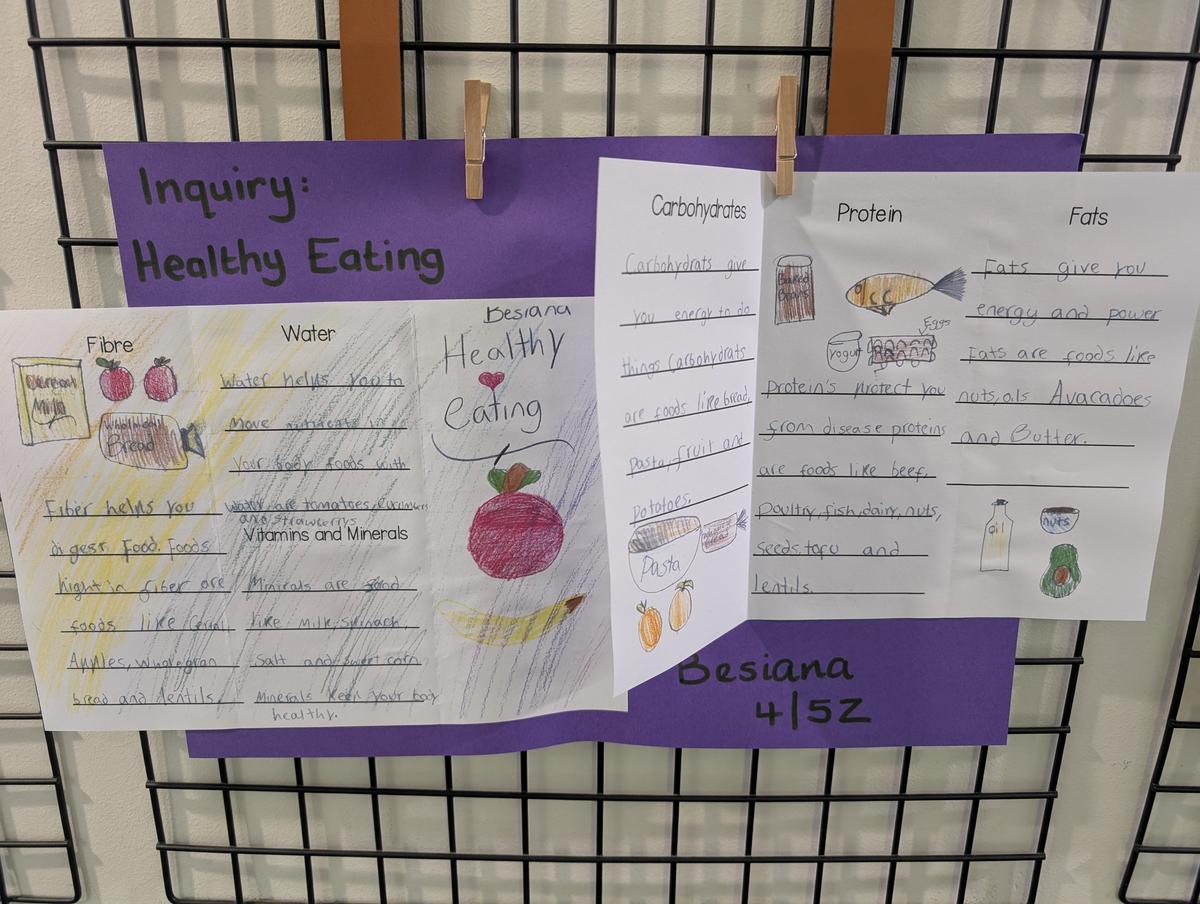 Inquiry:
Healthy Eating
Fibre
Cereal
Milk
Wholemeal
Bread
Fiber helps you
digest Food. Foods
hight in fiber are
foods like Cerial
Apples, Wholegran
bread and lentils.
Water
Water helps you to
Move nutrients in
your body foods with
water are tomatoes, cucumbers
and strawberrys
Vitamins and Minerals
Minirals are food
like Milk, Spinach,
Salt and sweet corn
Minerals keep your body
healthy.
Besiana
Healthy
eating
Carbohydrates
Carbohydrats give
you energy to do
things Carbohydrats
are foods like bread,
Pasta, fruit and
Potatoes.
Pasta
Protein
Baked
Beans
Eggs
yogurt
Protein's protect you
from disease proteins
are foods like beef,
Poultry, fish, dairy, nuts,
Seeds, tofu and
lentils.
Fats
Fats give you
energy and power
Fats are foods like
nuts, oils Avacadoes
and Butter.
oil
nuts
Besiana
4/5Z